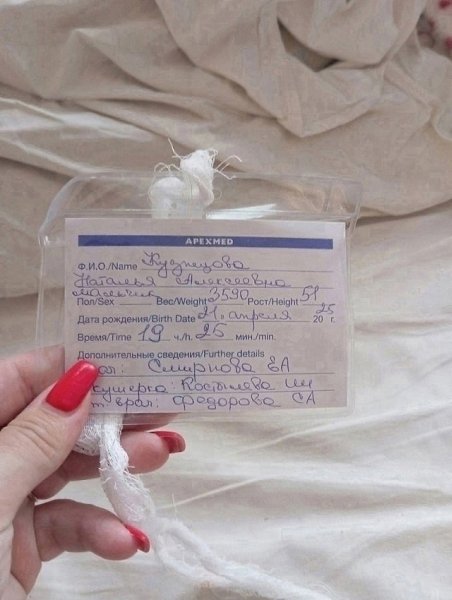 APEXMED
Ф.И.О/Name Кузнецова
Наталья Алексеевна
мальчик
Пол/Sex Вес/Weight 3590 Рост/Height 51
Дата рождения/Birth Date 21. апреля 20 25 г.
Время/Time 19 ч./h. 25 мин./min.
Дополнительные сведения/Further details
Смирнова ЕА
кушерка: Костылева
врач: Федорова СА